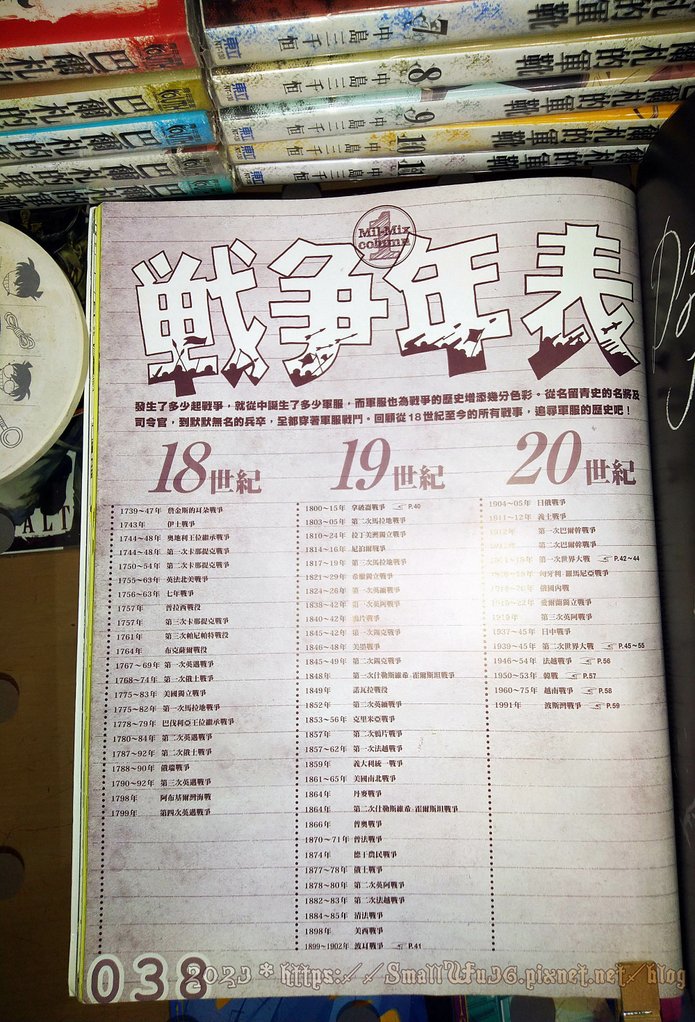 巴爾札
巴爾札
巴爾札的
巴爾札的
札的軍靴 中島三千恒 7
爾札的軍靴 中島三千恒 8
爾札的軍靴 中島三千恒 9
爾札的軍靴 中島三千恒 10
爾札的軍靴 中島三千恒 11
ALT
Mil-Mix
column
1
戦争年表
發生了多少起戰爭，就從中誕生了多少軍服，而軍服也為戰爭的歷史增添幾分色彩。從名留青史的名將及
司令官，到默默無名的兵卒，全都穿著軍服戰鬥。回顧從18世紀至今的所有戰事，追尋軍服的歷史吧！
18世紀
1739~47年 詹金斯的耳朵戰爭
1743年 伊土戰爭
1744~48年 奧地利王位繼承戰爭
1744~48年 第一次卡那提克戰爭
1750~54年 第二次卡那提克戰爭
1755~63年 英法北美戰爭
1756~63年 七年戰爭
1757年 普拉西戰役
1757年 第三次卡那提克戰爭
1761年 第三次帕尼帕特戰役
1764年 布克薩爾戰役
1767~69年 第一次英邁戰爭
1768~74年 第一次俄土戰爭
1775~83年 美國獨立戰爭
1775~82年 第一次馬拉地戰爭
1778~79年 巴伐利亞王位繼承戰爭
1780~84年 第二次英邁戰爭
1787~92年 第二次俄土戰爭
1788~90年 俄瑞戰爭
1790~92年 第三次英邁戰爭
1798年 阿布基爾灣海戰
1799年 第四次英邁戰爭
19世紀
1800~15年 拿破崙戰爭 P.40
1803~05年 第二次馬拉地戰爭
1810~24年 拉丁美洲獨立戰爭
1814~16年 尼泊爾戰爭
1817~19年 第三次馬拉地戰爭
1821~29年 希臘獨立戰爭
1824~26年 第一次英緬戰爭
1838~42年 第一次英阿戰爭
1840~42年 鴉片戰爭
1845~46年 第一次錫克戰爭
1846~48年 美墨戰爭
1848~49年 第二次錫克戰爭
1848年 第一次什勒斯維希-霍爾斯坦戰爭
1849年 諾瓦拉戰役
1852年 第二次英緬戰爭
1853~56年 克里米亞戰爭
1857年 第二次鴉片戰爭
1857~62年 第一次法越戰爭
1859年 義大利統一戰爭
1861~65年 美國南北戰爭
1864年 丹麥戰爭
1864年 第二次什勒斯維希-霍爾斯坦戰爭
1866年 普奧戰爭
1870~71年 普法戰爭
1874年 德干農民戰爭
1877~78年 俄土戰爭
1878~80年 第二次英阿戰爭
1882~83年 第二次法越戰爭
1884~85年 清法戰爭
1898年 美西戰爭
1899~1902年 波耳戰爭 P.41
20世紀
1904~05年 日俄戰爭
1911~12年 義土戰爭
1912年 第一次巴爾幹戰爭
第二次巴爾幹戰爭
第一次世界大戰 P.42~44
匈牙利-羅馬尼亞戰爭
俄國內戰
愛爾蘭獨立戰爭
1919年 第三次英阿戰爭
1937~45年 日中戰爭
1939~45年 第二次世界大戰 P.45~55
1946~54年 法越戰爭 P.56
1950~53年 韓戰 P.57
1960~75年 越南戰爭 P.58
1991年 波斯灣戰爭 P.59
038
2023 * https://SmallWu36.pixnet.net/blog